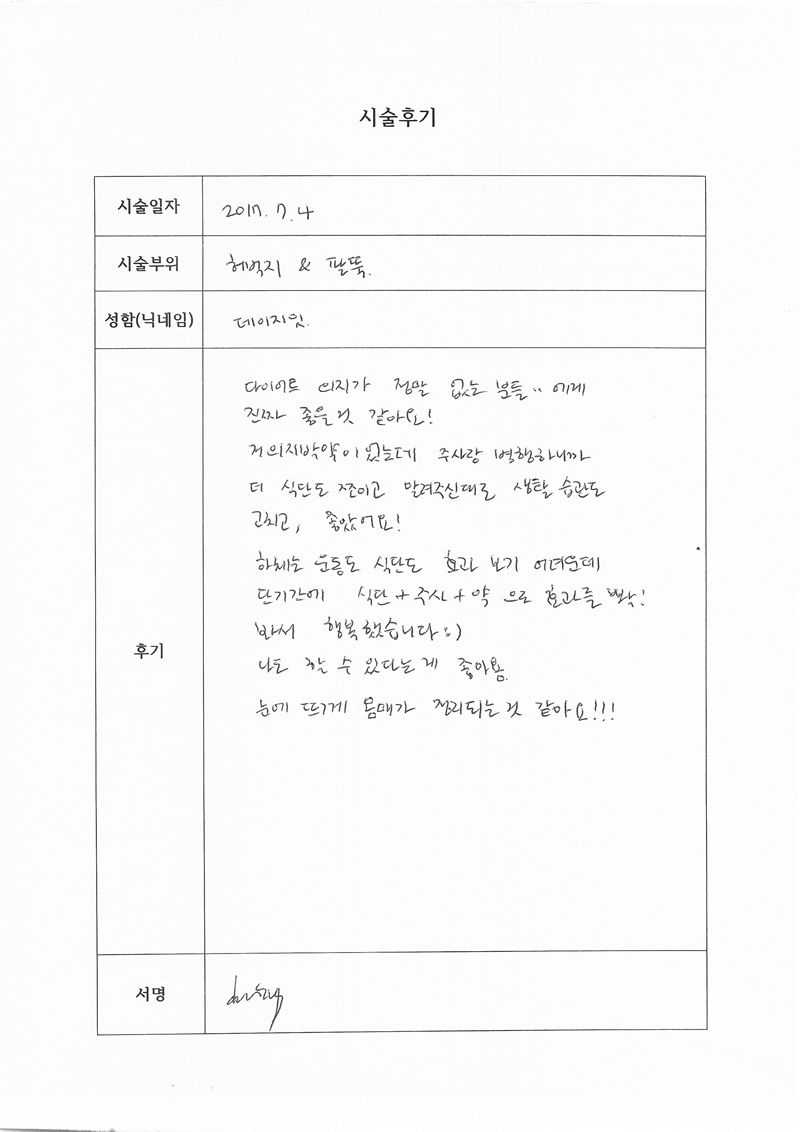 시술후기
시술일자 2017. 7. 4
시술부위 허벅지 & 팔뚝.
성함(닉네임) 데이지잇.
후기
다이어트 의지가 정말 없는 분들.. 에게
진짜 좋을것 같아요!
저 의지박약이었는데 주사랑 병행하니까
더 식단도 조이고 말려주신대로 생활 습관도
고치고, 좋았어요!
하체는 운동도 식단도 효과 보기 어려운데
단기간에 식단+주사+약 으로 효과를 빡!
봐서 행복했습니다 :)
나도 할 수 있다는게 좋아용.
눈에 뜨게 몸매가 정리되는것 같아요!!!
서명